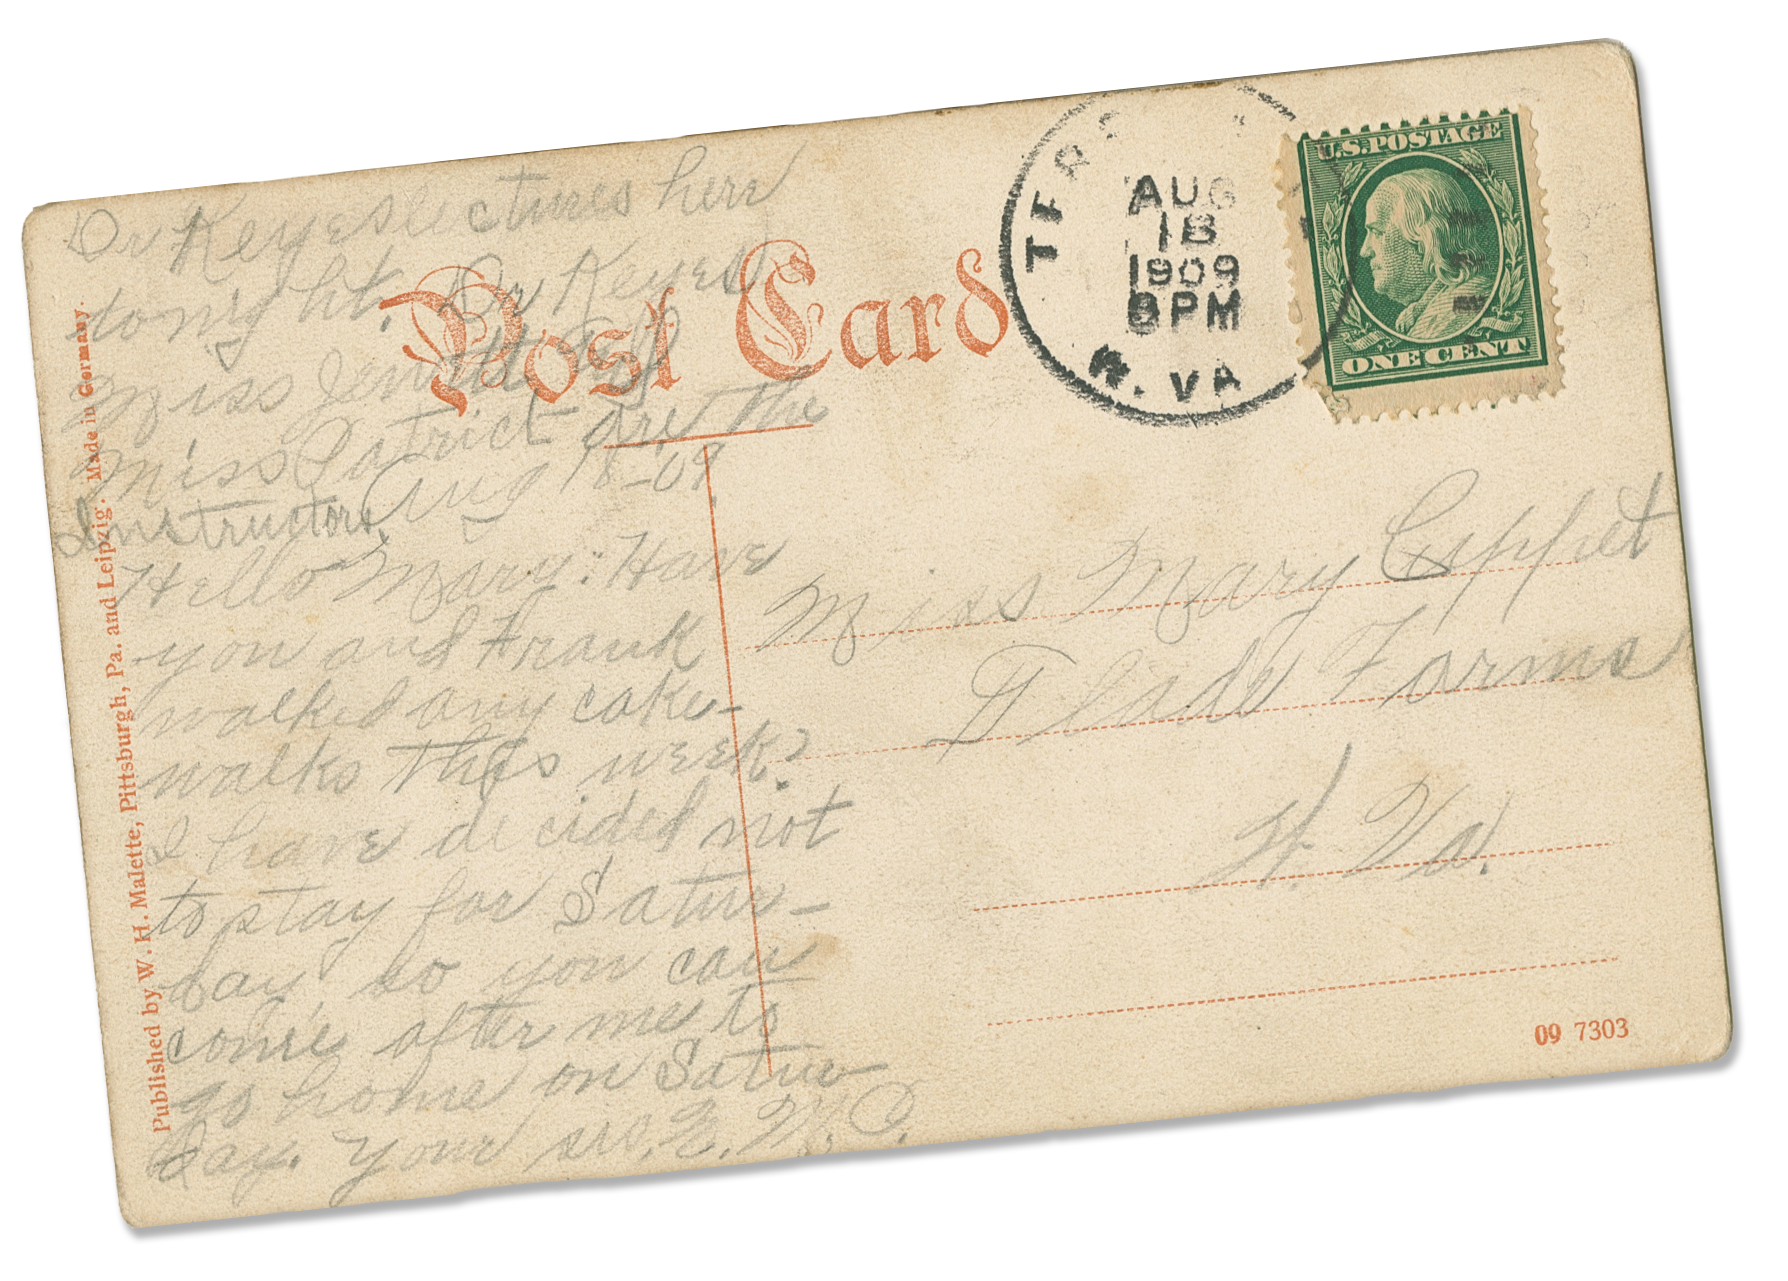 Dr Keyes lectures here
tonight. Dr Keyes
Miss Jewett
Miss Patrict are the
Instructors.
Aug 18-09.
Hello Mary: Have
you and Frank
walked any cake-
walks this week?
I have decided not
to stay for Satur-
day so you can
come after me to
go home on Satur-
day. Your sis. E. M. C.
Post Card
AUG
18
1909
8PM
W. VA
U.S. POSTAGE
ONE CENT
Miss Mary
Glade Farms
W. Va.
Published by W. H. Malette, Pittsburgh, Pa. and Leipzig. Made in Germany.
09 7303